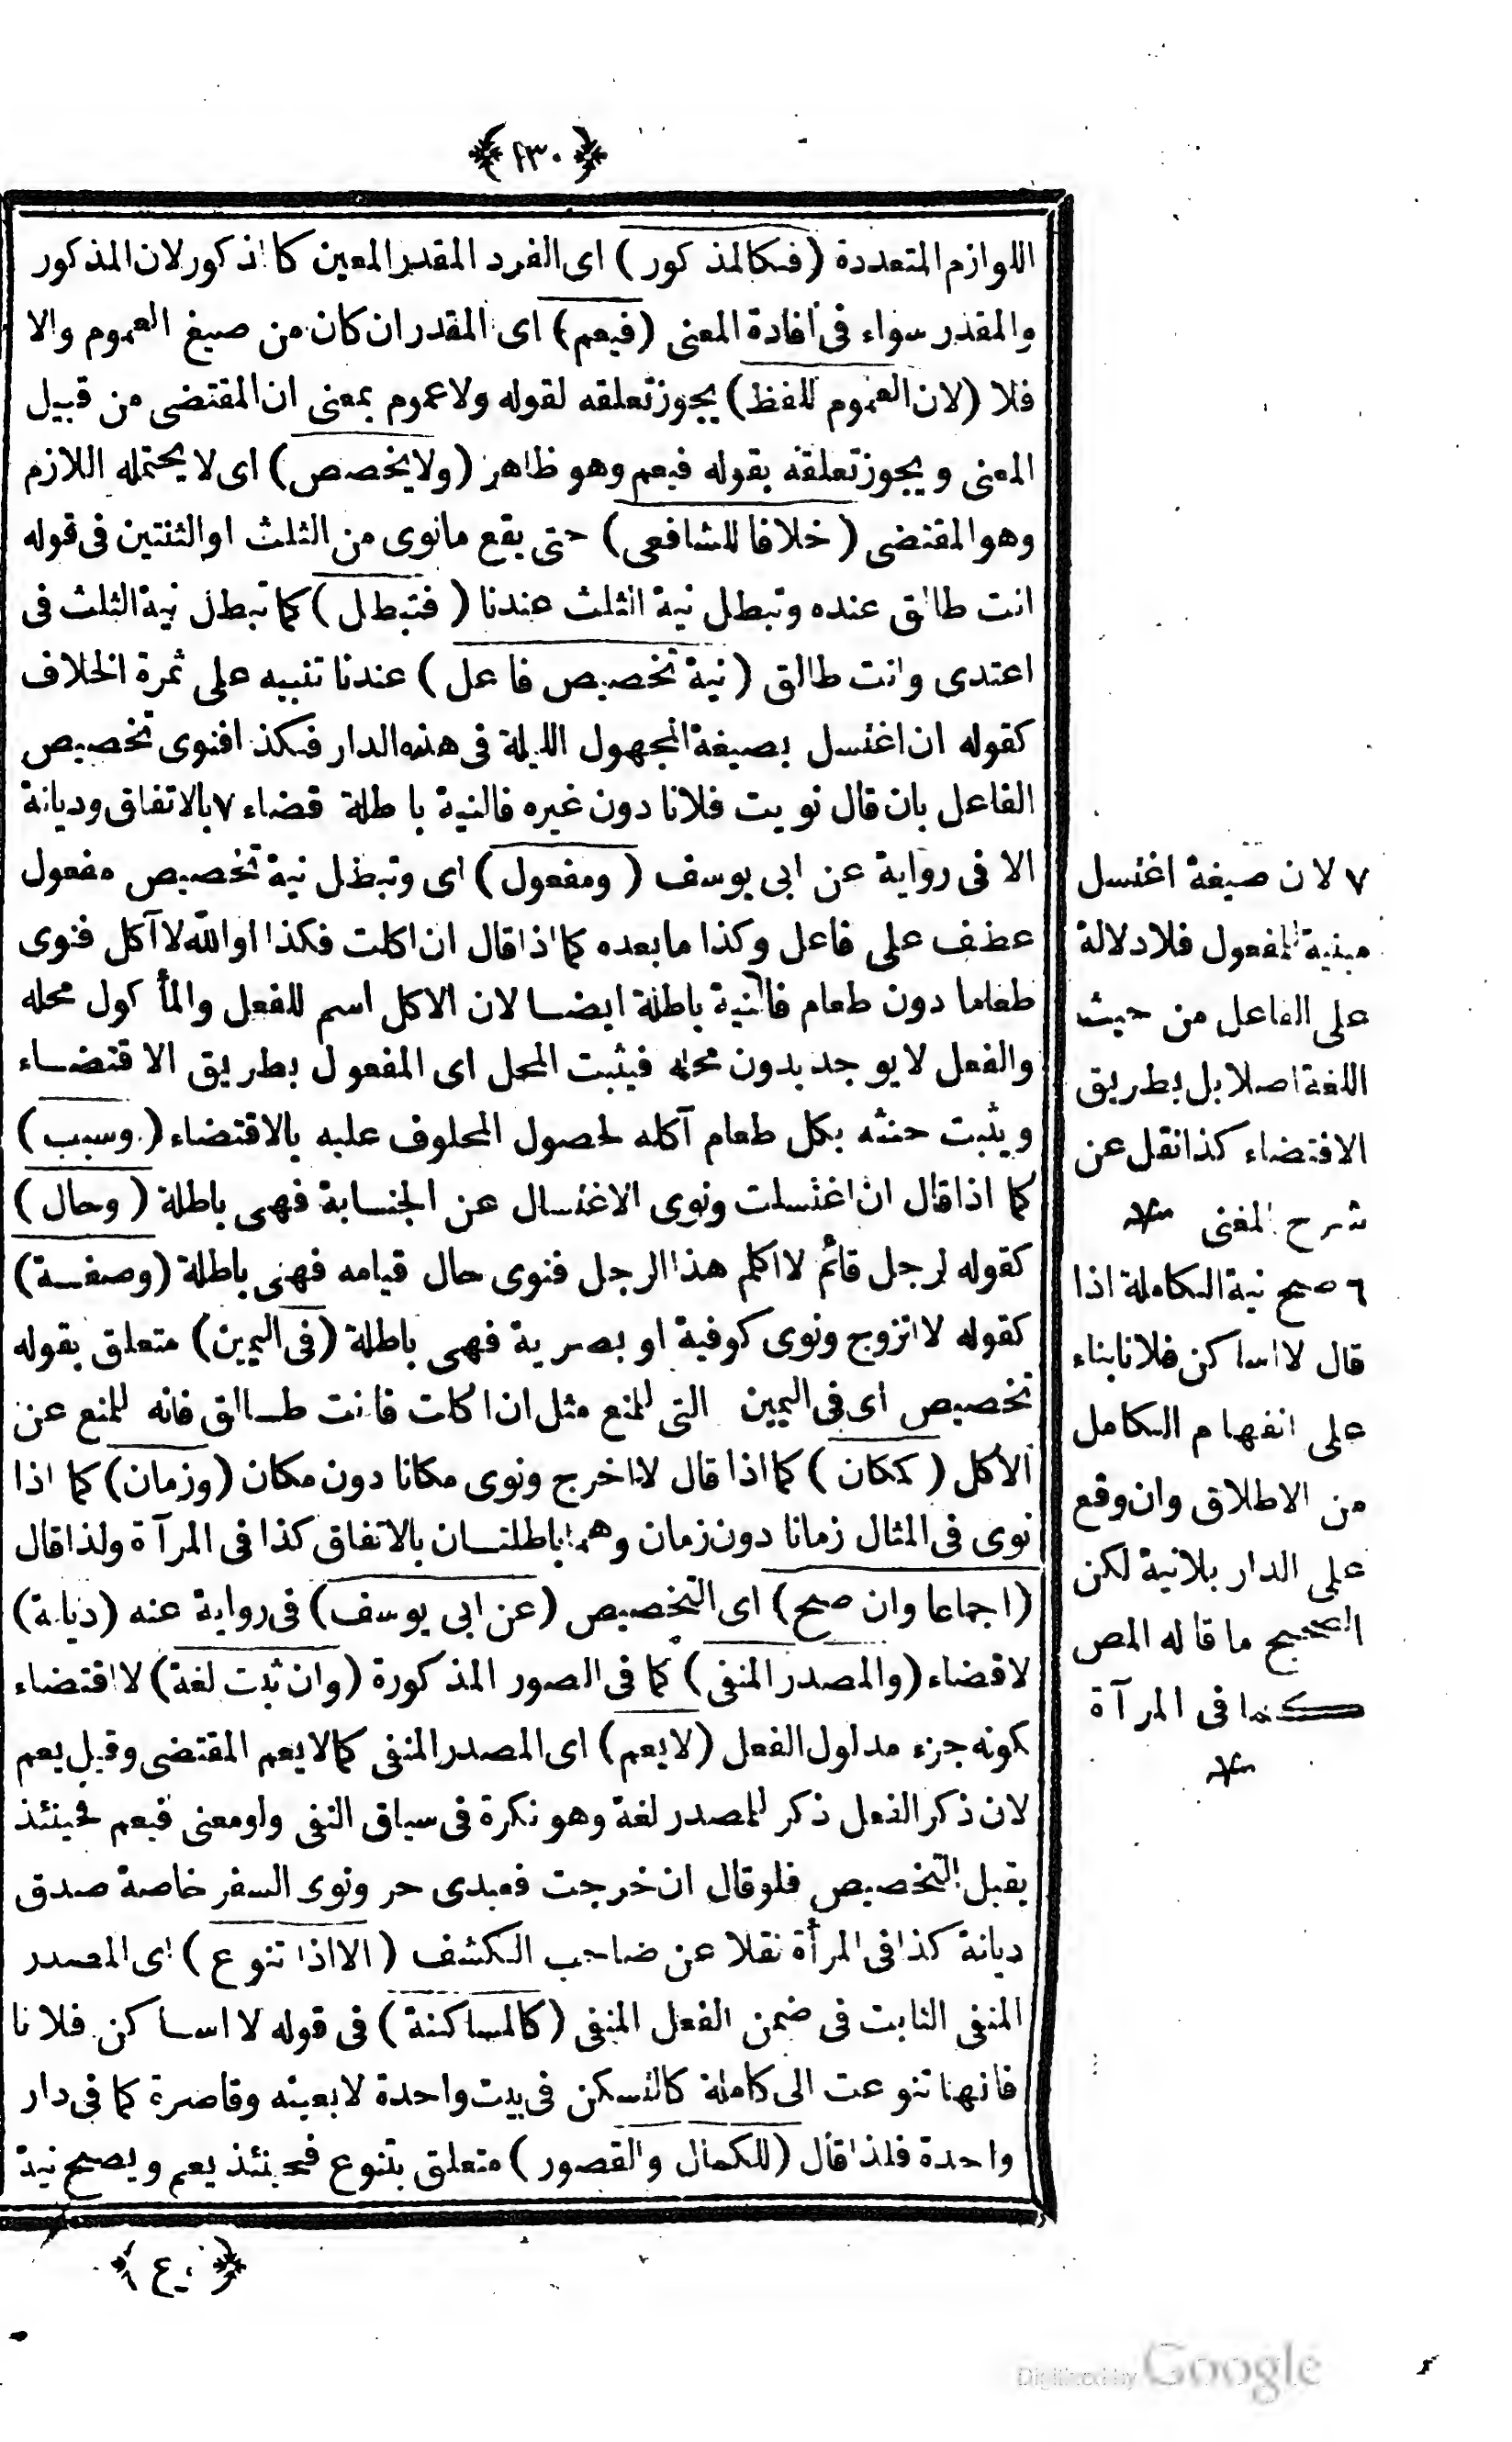 ﴿٢٣٠﴾
اللوازم المتعددة (فكالمذكور) اى الفرد المقدر المعين كالمذكور لان المذكور
والمقدر سواء فى افادة المعنى (فيعم) اى المقدر ان كان من صيغ العموم والا
فلا (لان العموم للفظ) يجوز تعلقه لقوله ولا عموم بمعنى ان المقتضى من قبيل
المعنى ويجوز تعلقه بقوله فيعم وهو ظاهر (ولا يخصص) اى لا يحتمله اللازم
وهو المقتضى (خلافا للشافعى) حتى يقع مانوى من الثلث او الثنتين فى قوله
انت طالق عنده وتبطل نية الثلث عندنا (فتبطل) كما تبطل نية الثلث فى
اعتدى وانت طالق (نية تخصيص فاعل) عندنا تنبيه على ثمرة الخلاف
كقوله ان اغتسل بصيغة المجهول الليلة فى هذه الدار فكذا فنوى تخصيص
الفاعل بان قال نويت فلانا دون غيره فالنية باطلة قضاء ٧ بالاتفاق وديانة
الا فى رواية عن ابى يوسف (ومفعول) اى وتبطل نية تخصيص مفعول
عطف على فاعل وكذا مابعده كما اذا قال ان اكلت فكذا او الله لا آكل فنوى
طعاما دون طعام فالنية باطلة ايضا لان الاكل اسم للفعل والمأكول محله
والفعل لا يوجد بدون محله فيثبت المحل اى المفعول بطريق الاقتضاء
ويثبت حنثه بكل طعام آكله لحصول المحلوف عليه بالاقتضاء (وسبب)
كما اذا قال ان اغتسلت ونوى الاغتسال عن الجنابة فهى باطلة (وحال)
كقوله لرجل قائم لا اكلم هذا الرجل فنوى حال قيامه فهى باطلة (وصفة)
كقوله لا اتزوج ونوى كوفية او بصرية فهى باطلة (فى اليمين) متعلق بقوله
تخصيص اى فى اليمين التى للمنع مثل ان اكلت فانت طالق فانه للمنع عن
الاكل (كمكان) كما اذا قال لا اخرج ونوى مكانا دون مكان (وزمان) كما اذا
نوى فى المثال زمانا دون زمان وهما باطلتان بالاتفاق كذا فى المرآة ولذا قال
(اجماعا وان صح) اى التخصيص (عن ابى يوسف) فى رواية عنه (ديانة)
لا قضاء (والمصدر المنفى) كما فى الصور المذكورة (وان ثبت لغة) لا اقتضاء
لكونه جزء مدلول الفعل (لا يعم) اى المصدر المنفى كما لا يعم المقتضى وقيل يعم
لان ذكر الفعل ذكر للمصدر لغة وهو نكرة فى سياق النفى ولو معنى فيعم فحينئذ
يقبل التخصيص فلو قال ان خرجت فعبدى حر ونوى السفر خاصة صدق
ديانة كذا فى المرأة نقلا عن صاحب الكشف (الا اذا تنوع) اى المصدر
المنفى الثابت فى ضمن الفعل المنفى (كالمساكنة) فى قوله لا اساكن فلانا
فانها تنوعت الى كاملة كالتسكن فى بيت واحدة لا بعينه وقاصرة كما فى دار
واحدة فلذا قال (للكمال والقصور) متعلق بتنوع فحينئذ يعم ويصح نية
٧ لان صيغة اغتسل
مبنية للمفعول فلا دلالة
على الفاعل من حيث
اللغة اصلا بل بطريق
الاقتضاء كذا نقل عن
شرح المغنى
٦ صح نية الكاملة اذا
قال لا اساكن فلانا بناء
على انفهام الكامل
من الاطلاق وان وقع
على الدار بلا نية لكن
الصحيح ما قاله المص
كما فى المرآة
Digitized by Google